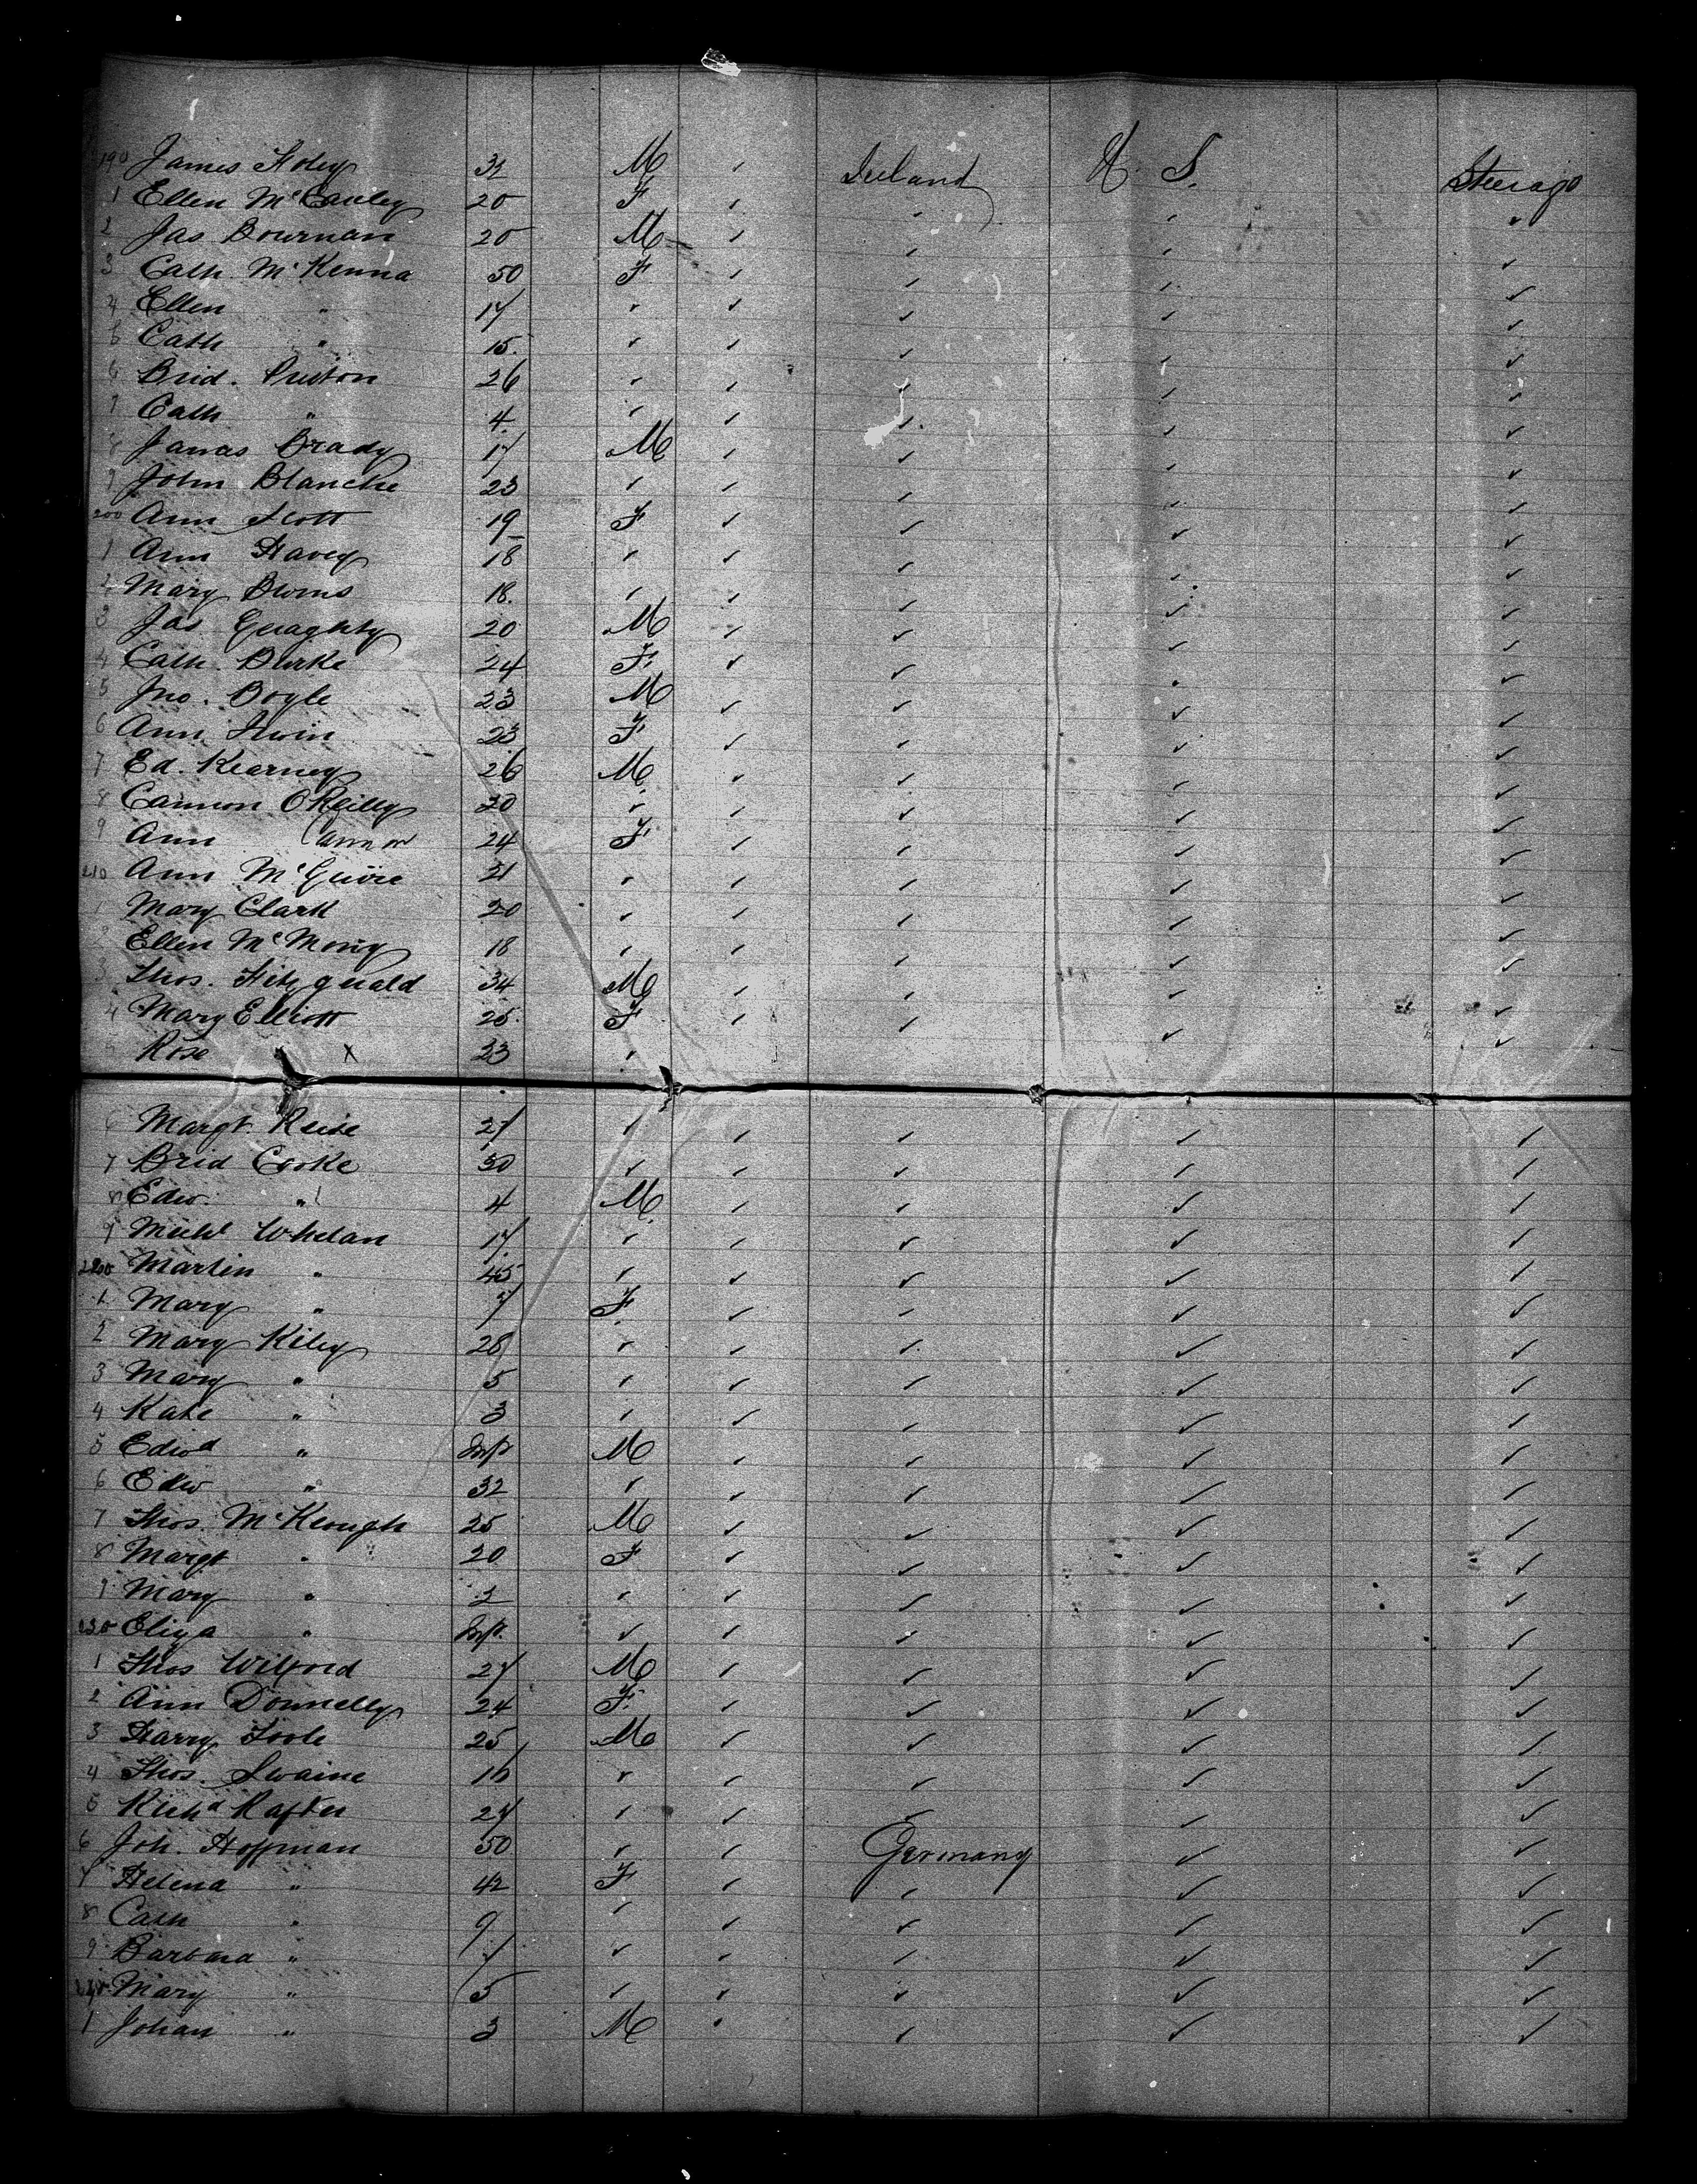 190 James Foley 32 M " Ireland U. S. Steerage
1 Ellen McCauley 20 F " " " "
2 Jas Bournan 20 M " " " "
3 Cath McKenna 50 F " " " "
4 Ellen " 17 " " " " "
5 Cath " 15 " " " " "
6 Brid. Preston 26 " " " " "
7 Cath " 4 " " " " "
8 James Brady 17 M " " " "
9 John Blanche 23 " " " " "
200 Ann Scott 19 F " " " "
1 Ann Havey 18 " " " " "
2 Mary Owens 18 " " " " "
3 Jas Geraghty 20 M " " " "
4 Cath Burke 24 F " " " "
5 Jno. Boyle 23 M " " " "
6 Ann Irwin 23 F " " " "
7 Ed. Kearney 26 M " " " "
8 Cannon O'Reilly 30 " " " " "
9 Ann Cannon 24 F " " " "
210 Ann McGuire 21 " " " " "
1 Mary Clark 20 " " " " "
2 Ellen 18 " " " " "
3 Thos. Fitzgerald 34 M " " " "
4 Mary Elliott 25 F " " " "
5 Rose x 23 "
6 Margt 27 " " " " "
7 Brid Cooke 30 " " " " "
8 Edw. " 4 M " " " "
9 Michl Whelan 17 " " " " "
220 Martin " 45 " " " " "
1 Mary " 7 F " " " "
2 Mary Kiley 28 " " " " "
3 Mary " 5 " " " " "
4 Kate " 3 " " " " "
5 Edwd " Inft M " " " "
6 Edw " 32 " " " " "
7 Thos. McKeough 25 M " " " "
8 Margt " 20 F " " " "
9 Mary " 2 " " " " "
230 Eliza " Inft. " " " " "
1 Thos Wilford 27 M " " " "
2 Ann Donnelly 24 F " " " "
3 Harry Toole 25 M " " " "
4 Thos. Swaine 16 " " " " "
5 Richd Rafter 27 " " " " "
6 Joh. Hoffman 50 " " Germany " "
7 Helena " 42 F " " " "
8 Cath " 9 " " " " "
9 Barbara " 7 " " " " "
240 Mary " 5 " " " " "
1 Johan " 3 M " " " "